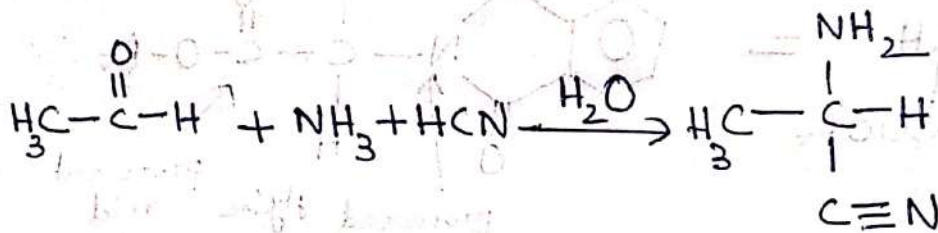 O
||
H₃C—C—H + NH₃ + HCN —H₂O→ H₃C—C—H
NH₂
|
|
C≡N